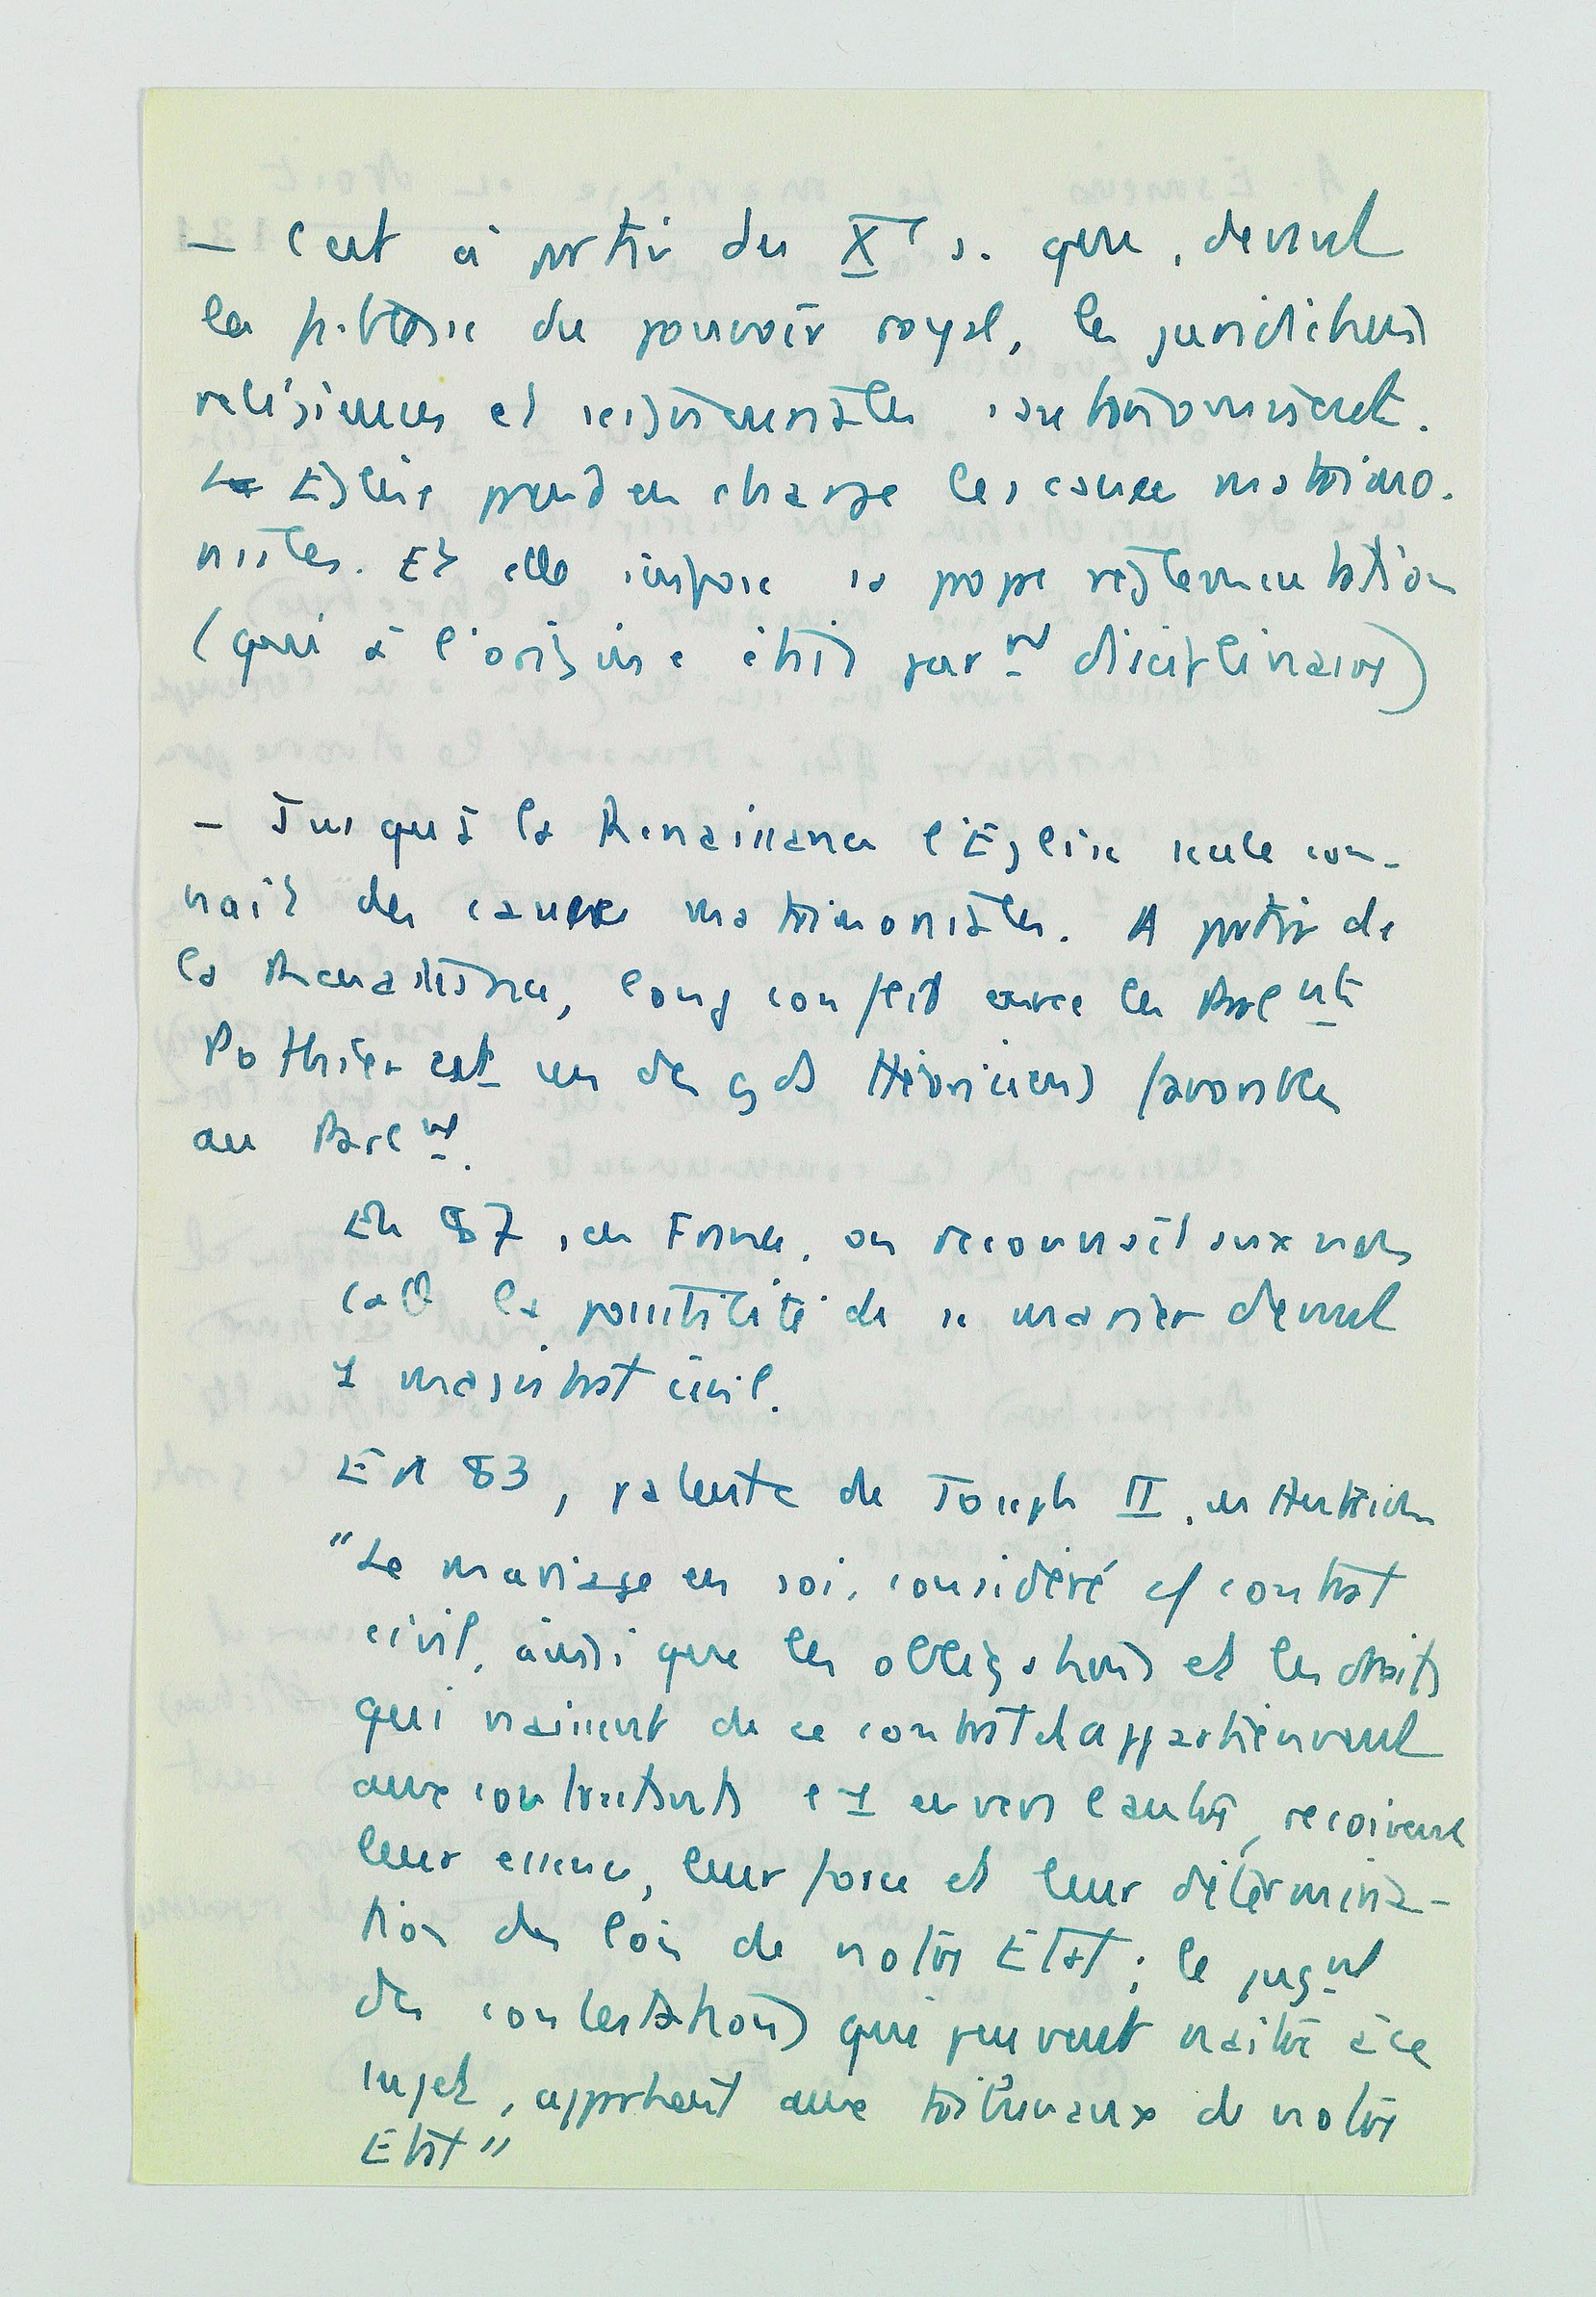 — C'est à partir du Xe s. que, devant
la faiblesse du pouvoir royal, les juridictions
religieuses et seigneuriales s'autonomisent.
L'Eglise prend en charge les causes matrimo-
niales. Et elle impose sa propre réglementation
(qui à l'origine était purnt disciplinaire)
— Jusqu'à la Renaissance l'Eglise seule con-
naît des causes matrimoniales. A partir de
la Renaissance, long conflit avec les Parlnts
Pothier est un des gds théoriciens favorables
au Parlnt.
En 87, en France, on reconnaît aux non
cath la possibilité de se marier devant
1 magistrat civil.
En 83, patente de Joseph II, en Autriche
"Le mariage en soi, considéré c/ contrat
civil, ainsi que les obligations et les droits
qui naissent de ce contrat et appartiennent
aux contractants l'1 envers l'autre, reçoivent
leur essence, leur force et leur détermina-
tion des lois de notre Etat ; le jugnt
des contestations qui peuvent naître à ce
sujet, appartient aux tribunaux de notre
Etat"